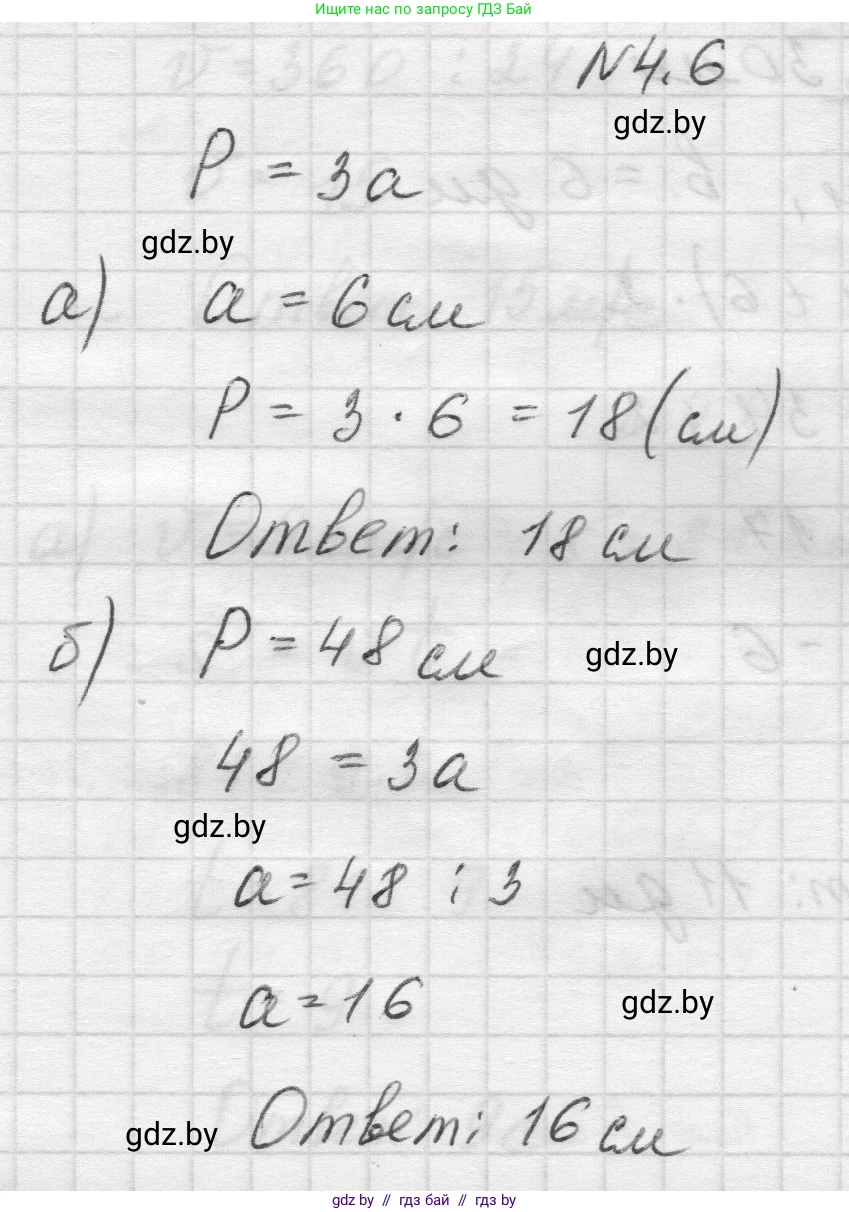 Ищите нас по запросу ГДЗ Бай
N4.6
gdz.by
P = 3a
gdz.by
а) a = 6 см
P = 3 · 6 = 18 (см)
Ответ: 18 см
б) P = 48 см
gdz.by
48 = 3a
gdz.by
a = 48 : 3
a = 16
gdz.by
gdz.by
Ответ: 16 см
gdz.by // гдз бай // гдз by